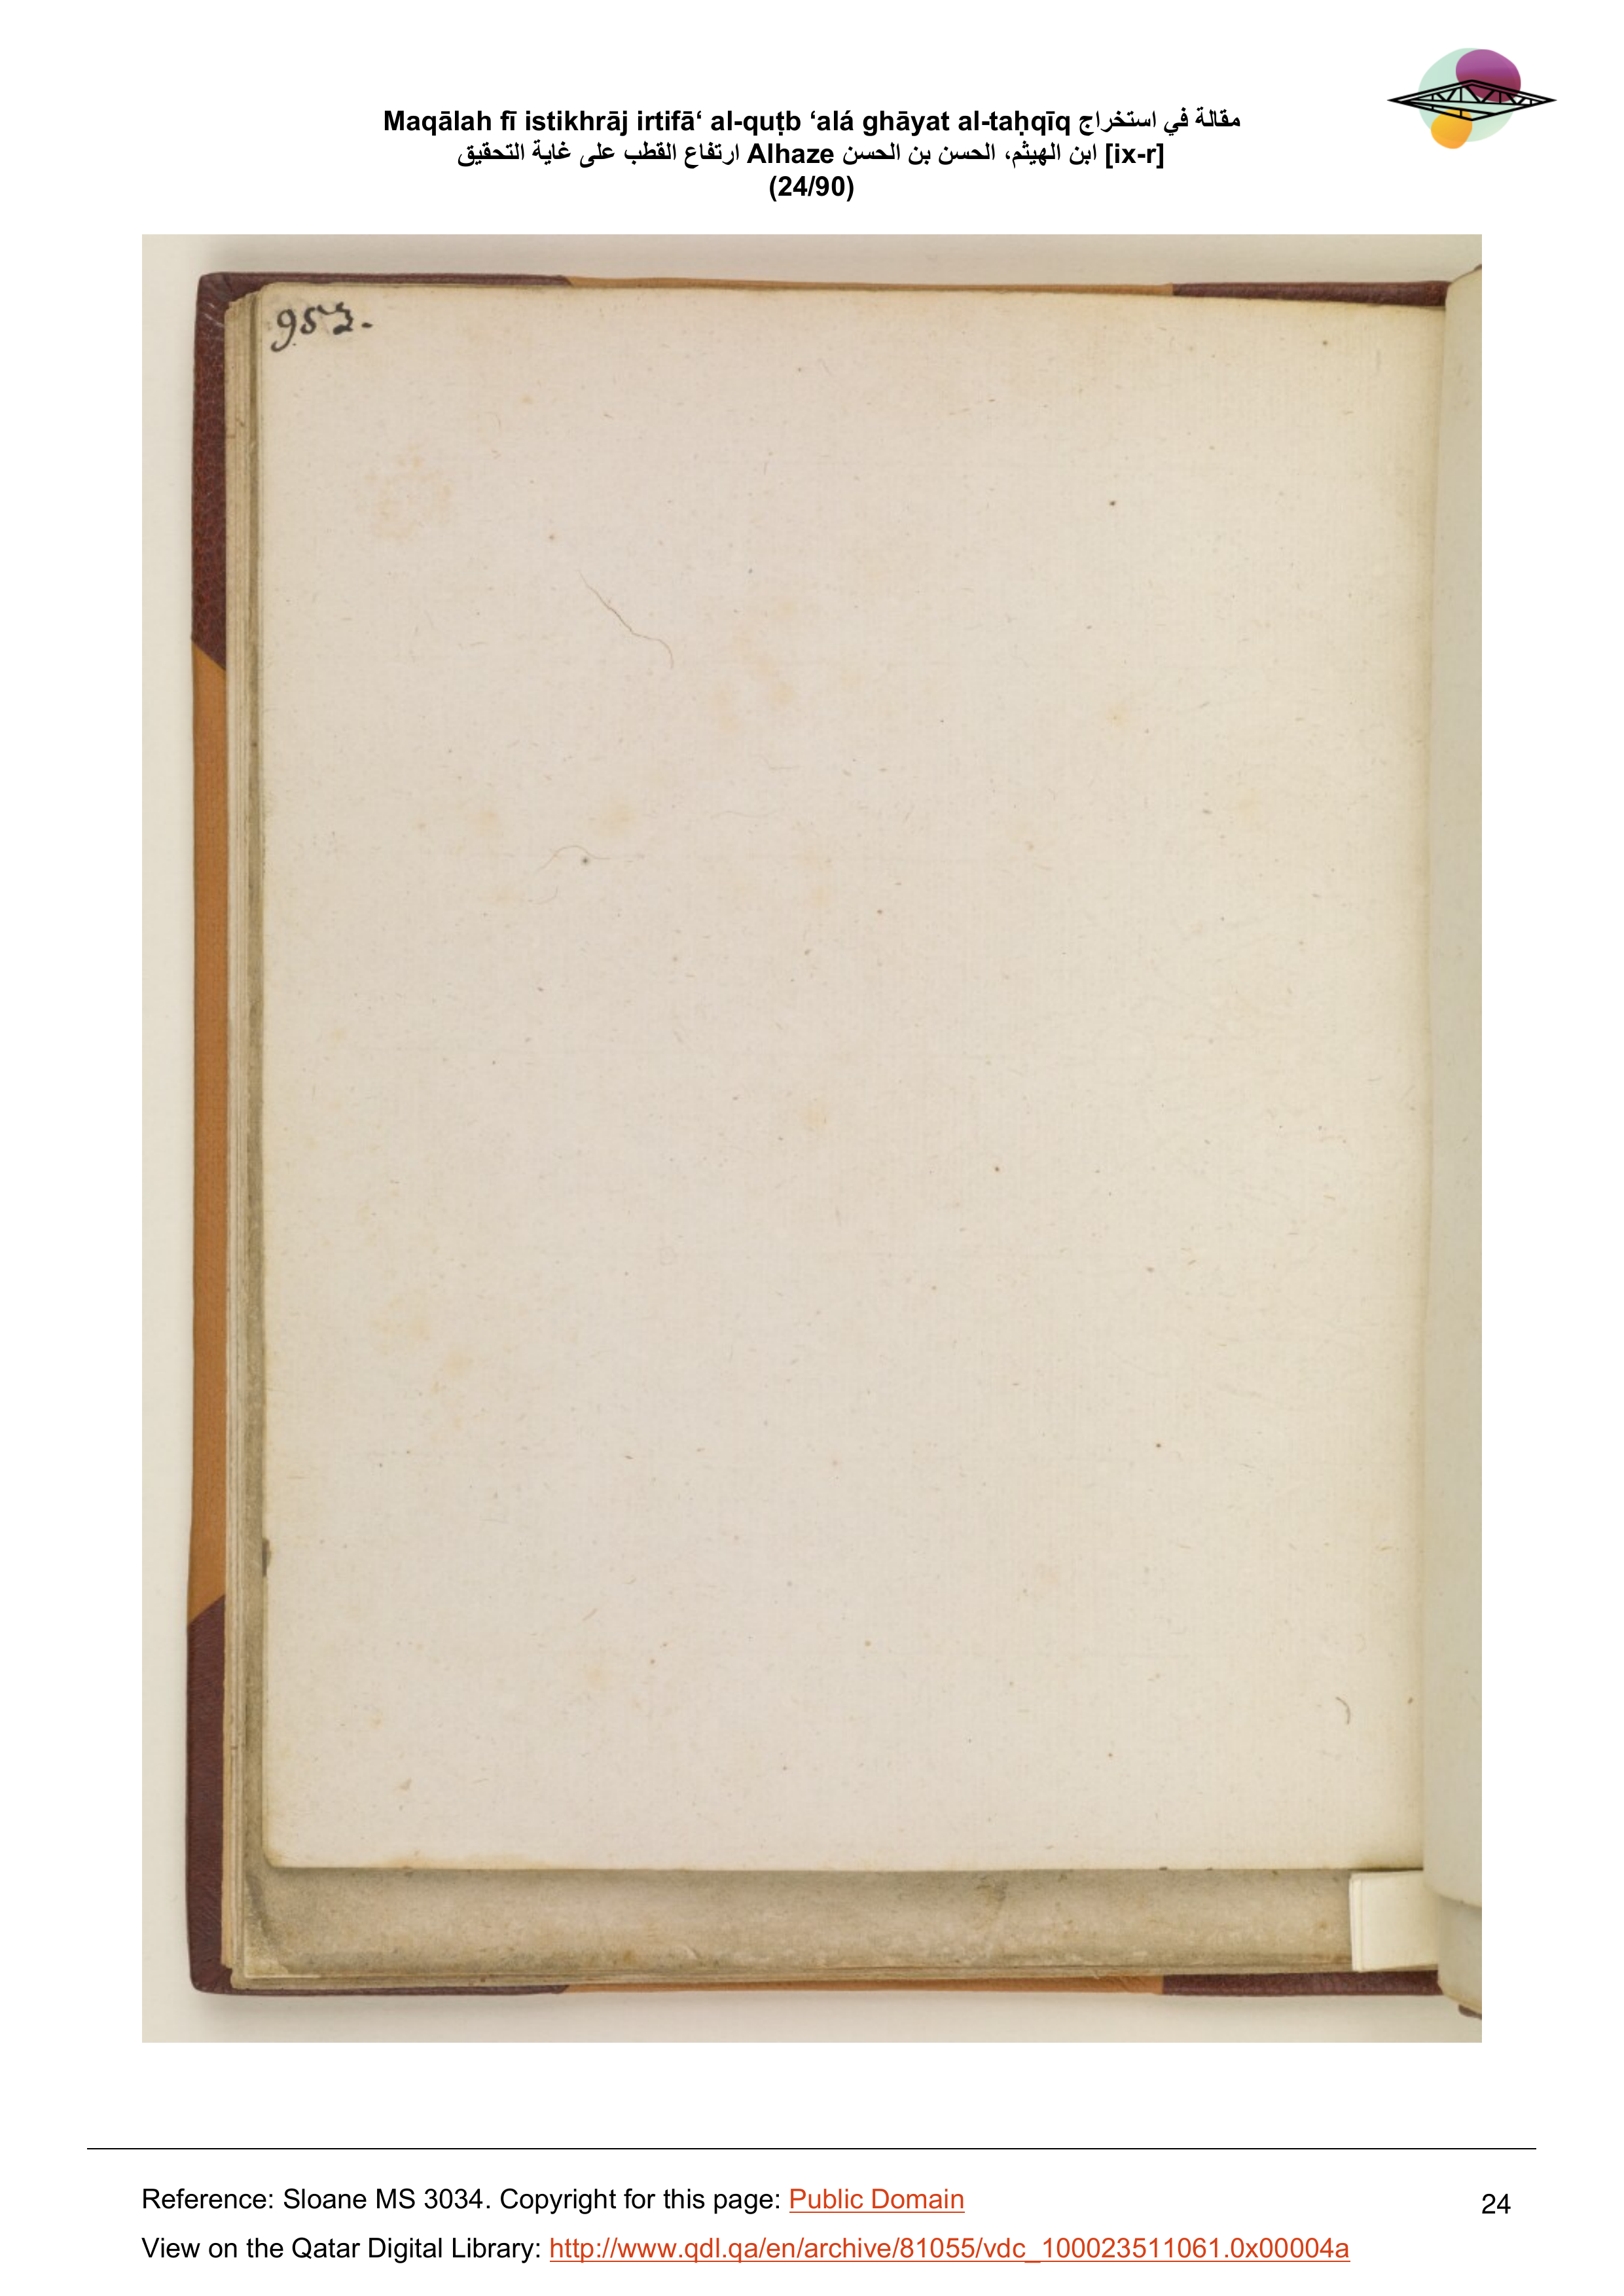 Maqālah fī istikhrāj irtifā‘ al-quṭb ‘alá ghāyat al-taḥqīq مقالة في استخراج
ارتفاع القطب على غاية التحقيق Alhaze ابن الهيثم، الحسن بن الحسن [ix-r]
(24/90)
953.
Reference: Sloane MS 3034. Copyright for this page: Public Domain
24
View on the Qatar Digital Library: http://www.qdl.qa/en/archive/81055/vdc_100023511061.0x00004a